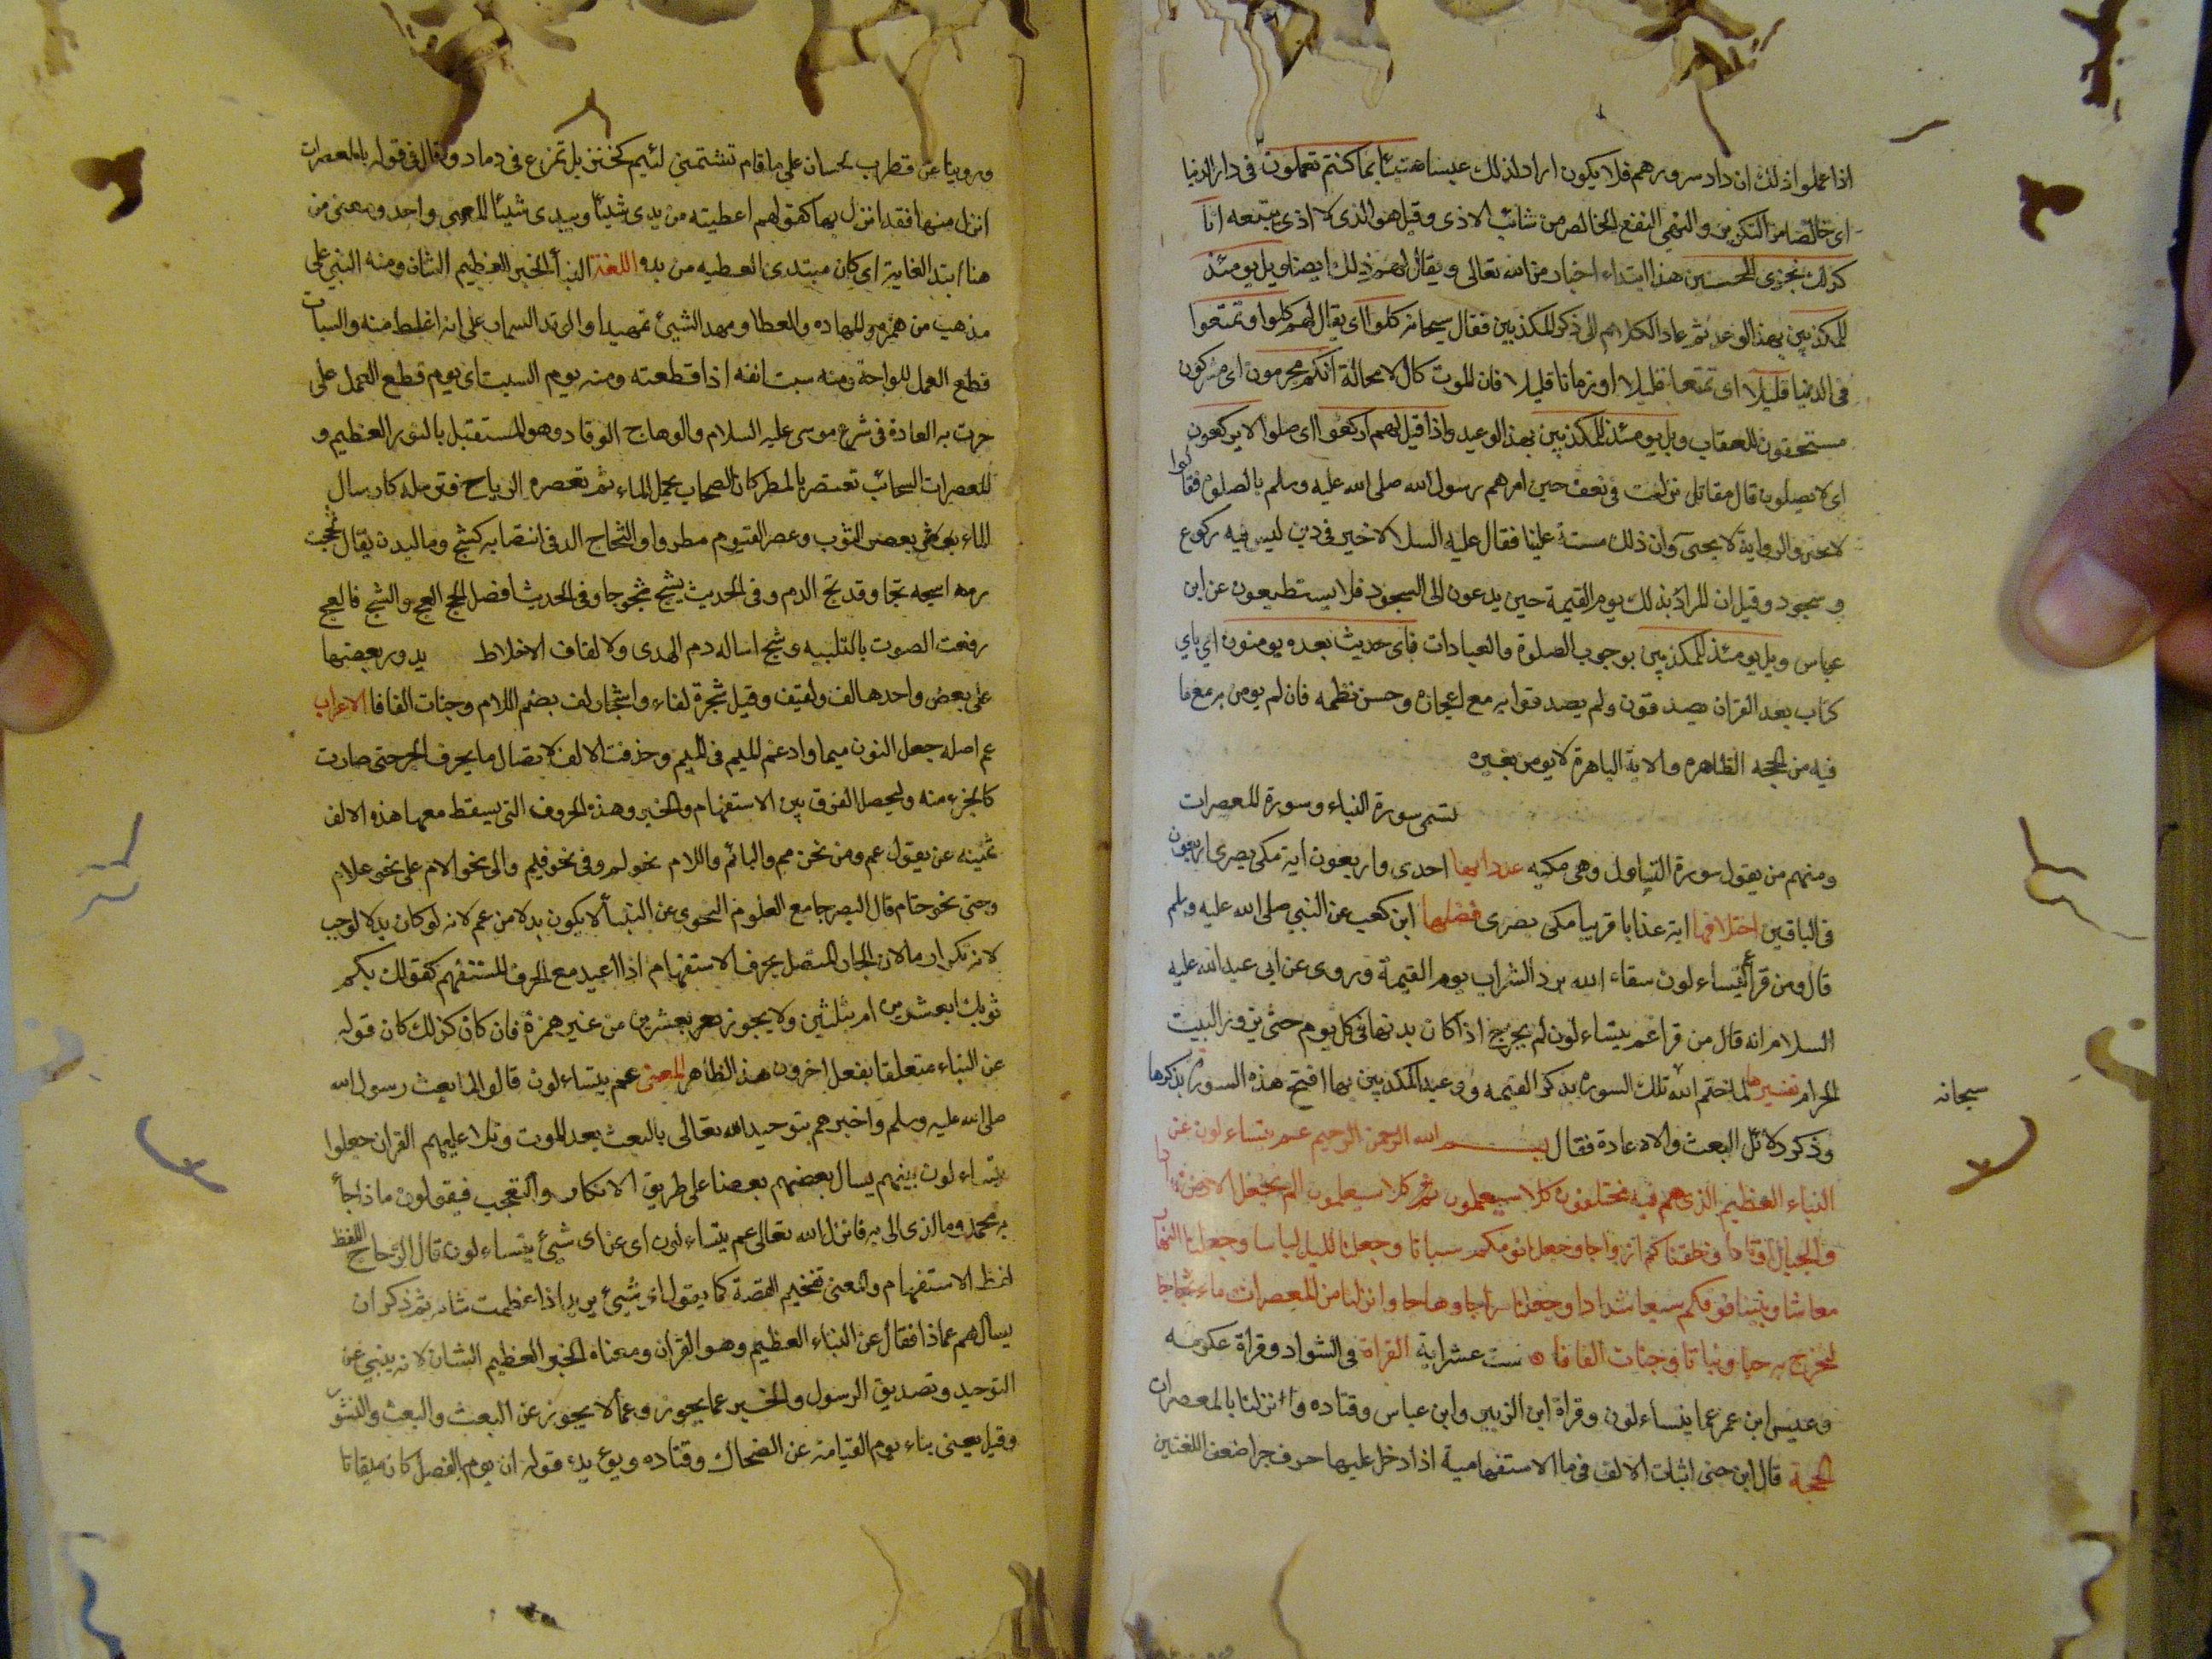 اذا عملوا ذلك ازداد سرورهم فلا يكون اراد لذلك عبسا هنيئا بما كنتم تعملون فى دار الدنيا
اى خالصا من التكرير والتهنى النفع الخالص من شائب الاذى وقيل هو الذى لا اذى يتبعه انا
كذلك نجزى المحسنين هذا ابتداء اخبار من الله تعالى ويقال لهم ذلك ايضا ويل يومئذ
للمكذبين بهذا الوعد ثم عاد الكلام الى ذكر المكذبين فقال سبحانه كلوا اى يقال لهم كلوا وتمتعوا
فى الدنيا قليلا اى تمتعا قليلا او زمانا قليلا فان الموت كال لا محالة انكم مجرمون اى مشركون
مستحقون للعقاب ويل يومئذ للمكذبين بهذا الوعيد واذا قيل لهم اركعوا اى صلوا لا يركعون
اى لا يصلون قال مقاتل نزلت فى ثقف حين امرهم رسول الله صلى الله عليه وسلم بالصلوة فقالوا
لا نحنى والرواية لا نجبى وان ذلك مسبة علينا فقال عليه السلا لا خير فى دين ليس فيه ركوع
و سجود وقيل ان المراد بذلك يوم القيمة حين يدعون الى السجود فلا يستطيعون عن ابن
عباس ويل يومئذ للمكذبين بوجوب الصلوة والعبادات فباى حديث بعده يومنون اى باى
كتاب بعد القران يصدقون ولم يصدقوا به مع اعجازه وحسن نظمه فان لم يومن به مع ما
فيه من الحجه الظاهره والاية الباهرة لا يومن بغيره
تسمى سورة النباء وسورة المعصرات
ومنهم من يقول سورة التساول وهى مكيه عدد ايها احدى واربعون اية مكى بصرى اربعون
فى الباقين اختلافها اية عذابا قريبا مكى بصرى فضلها ابن كعب عن النبي صلى الله عليه وسلم
قال ومن قرأ يتساءلون سقاه الله برد الشراب يوم القيمة وروى عن ابى عبد الله عليه
السلام انه قال من قرا عم يتساءلون لم يخرج اذا كان يدمنها فى كل يوم حتى يزور البيت
الحرام تفسيرها لما ختم الله تلك السوره بذكر القيمه ووعيد المكذبين بها افتتح هذه السورة بذكرها
سبحانه
وذكر دلائل البعث والاعادة فقال بسم الله الرحمن الرحيم عم يتساءلون عن
النباء العظيم الذى هم فيه مختلفون كلا سيعلمون ثم كلا سيعلمون الم نجعل الارض مهادا
والجبال اوتادا وخلقناكم ازواجا وجعلنا نومكم سباتا وجعلنا الليل لباسا وجعلنا النهار
معاشا وبنينا فوقكم سبعا شدادا وجعلنا سراجا وهاجا وانزلنا من المعصرات ماء ثجاجا
لنخرج به حبا ونباتا وجنات الفافا ست عشراية القراة فى الشواد وقراة عكرمه
وعيسى ابن عمر عما يتساءلون وقراة ابن الزبير وابن عباس وقتاده وانزلنا بالمعصرات
الحجة قال ابن جنى اثبات الالف فى ما الاستفهامية اذا دخل عليها حرف جر اضعف اللغتين
وروينا عن قطرب لحسان على ما قام تشتمنى لئيم كخنزير تمرغ فى دماد وقال فى قوله بالمعصرات
انزل منها فقد انزل بها كقولهم اعطيته من يدى شيئا وبيدى شيئا المعنى واحد ومعنى من
هنا ابتد الغاية اى كان مبتدى العطيه من يده اللغة النبأ الخبر العظيم الشان ومنه النبي على
مذهب من همزه والمهاده والعطا ومهد الشيئ تمهيدا والوتد السمار على انه اغلظ منه والسبات
قطع العمل للراحة ومنه سبت انفه اذا قطعته ومنه يوم السبت اى يوم قطع العمل على
جرت به العادة فى شرع موسى عليه السلام والوهاج الوقاد وهو المستقبل بالنور العظيم و
المعصرات السحائب تعتصر بالمطر كان السحاب يحمل الماء ثم تعصره الرياح فترسله كارسال
الماء بعض الثوب وعصر القوم مطروا والثجاج الدفاع انصبابه كثج وما البدن يقال ثججت
دمه اثجه ثجا وقد ثج الدم وفى الحديث يثج ثجوجا وفى الحديث افضل الحج العج والثج فالعج
رفعت الصوت بالتلبيه وثج اساله دم الهدى ولالفاف الاخلاط يدور بعضها
على بعض واحدها لف ولفيف وقيل شجرة لفاء واشجار لف بضم اللام وجنات الفافا الاعراب
عم اصله جعل النون ميما وادغم الميم فى الميم وحذفت الالف لاتصال ما بحرف الجر حتى صارت
كالجزء منه وليحصل الفرق بين الاستفهام والخبر وهذه الحروف التى يسقط معها هذه الالف
ثمينه عن يقول عم ومن نحو مم والبا ئم واللام نحو لم وفى نحو فيم والى نحو الام على نحو علام
وحتى نحو حتام قال البصر جامع العلوم النحوى عن النبأ لا يكون بدلا من عم لانه لو كان بدلا لوجب
لانه تكرار ما لان الجار المتصل بحرف الاستفهام اذا اعيد مع الحرف المستفهم كقولك بكم
ثوبك ابعشرين ام بثلثين ولا يجوز بعشرين من غير همزة فان كان كذلك كان قوله
عن النباء متعلقا بفعل اخر دون هذا الظاهر المعنى عم يتساءلون قالوا لما بعث رسول الله
صلى الله عليه وسلم واخبرهم بتوحيد الله تعالى بالبعث بعد الموت وتلا عليهم القران جعلوا
يتساءلون بينهم يسال بعضهم بعضا على طريق الانكار والتعجب فيقولون ماذا جأ
به محمد وما الذى اتى به فانزل الله تعالى عم يتساءلون اى عن اى شيئ يتساءلون قال الزجاج اللفظ
لفظ الاستفهام والمعنى تفخيم القصة كما يقول اى شيئ يريد اذا عظمت شانه ثم ذكر ان
يسالهم عماذا فقال عن النباء العظيم وهو القران ومعناه الخبر العظيم الشان لانه ينبي عن
التوحيد وتصديق الرسول والخبر عما يجوز وعما لا يجوز عن البعث والبعث والنشور
وقيل يعنى نباء يوم القيامة عن الضحاك وقتاده ويويده قوله ان يوم الفصل كان ميقاتا